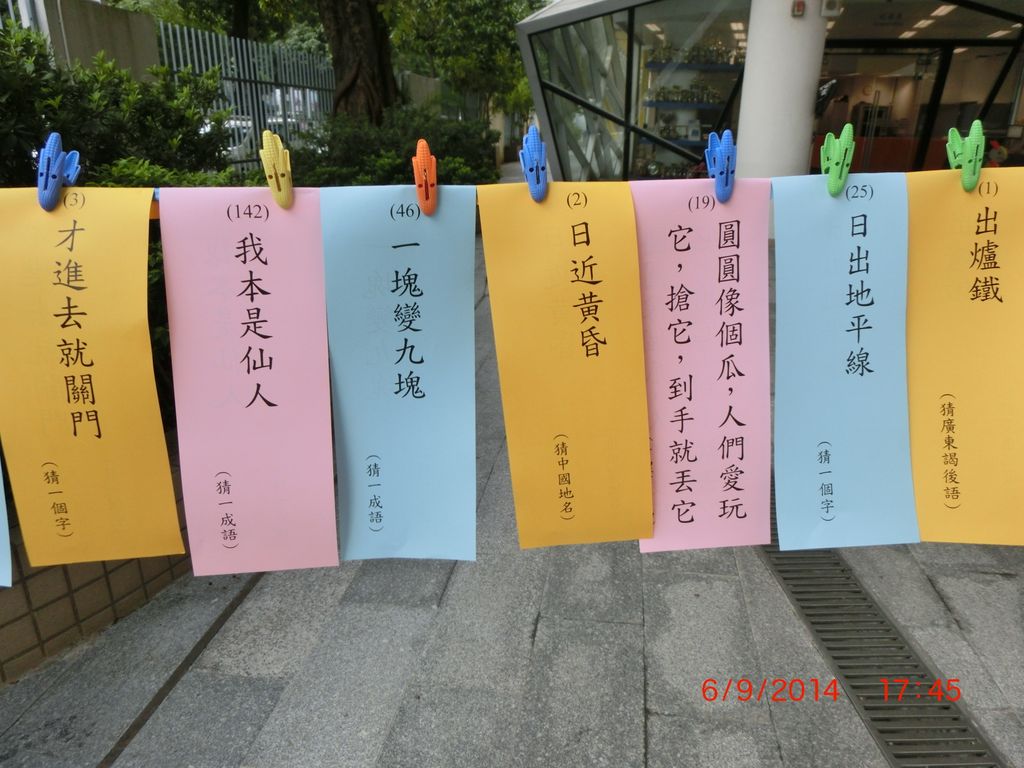 (3)
才進去就關門
(猜一個字)
(142)
我本是仙人
(猜一成語)
(46)
一塊變九塊
(猜一成語)
(2)
日近黃昏
(猜中國地名)
(19)
圓圓像個瓜，人們愛玩
它，搶它，到手就丟它
(25)
日出地平線
(猜一個字)
(1)
出爐鐵
(猜廣東謁後語)
6/9/2014 17:45